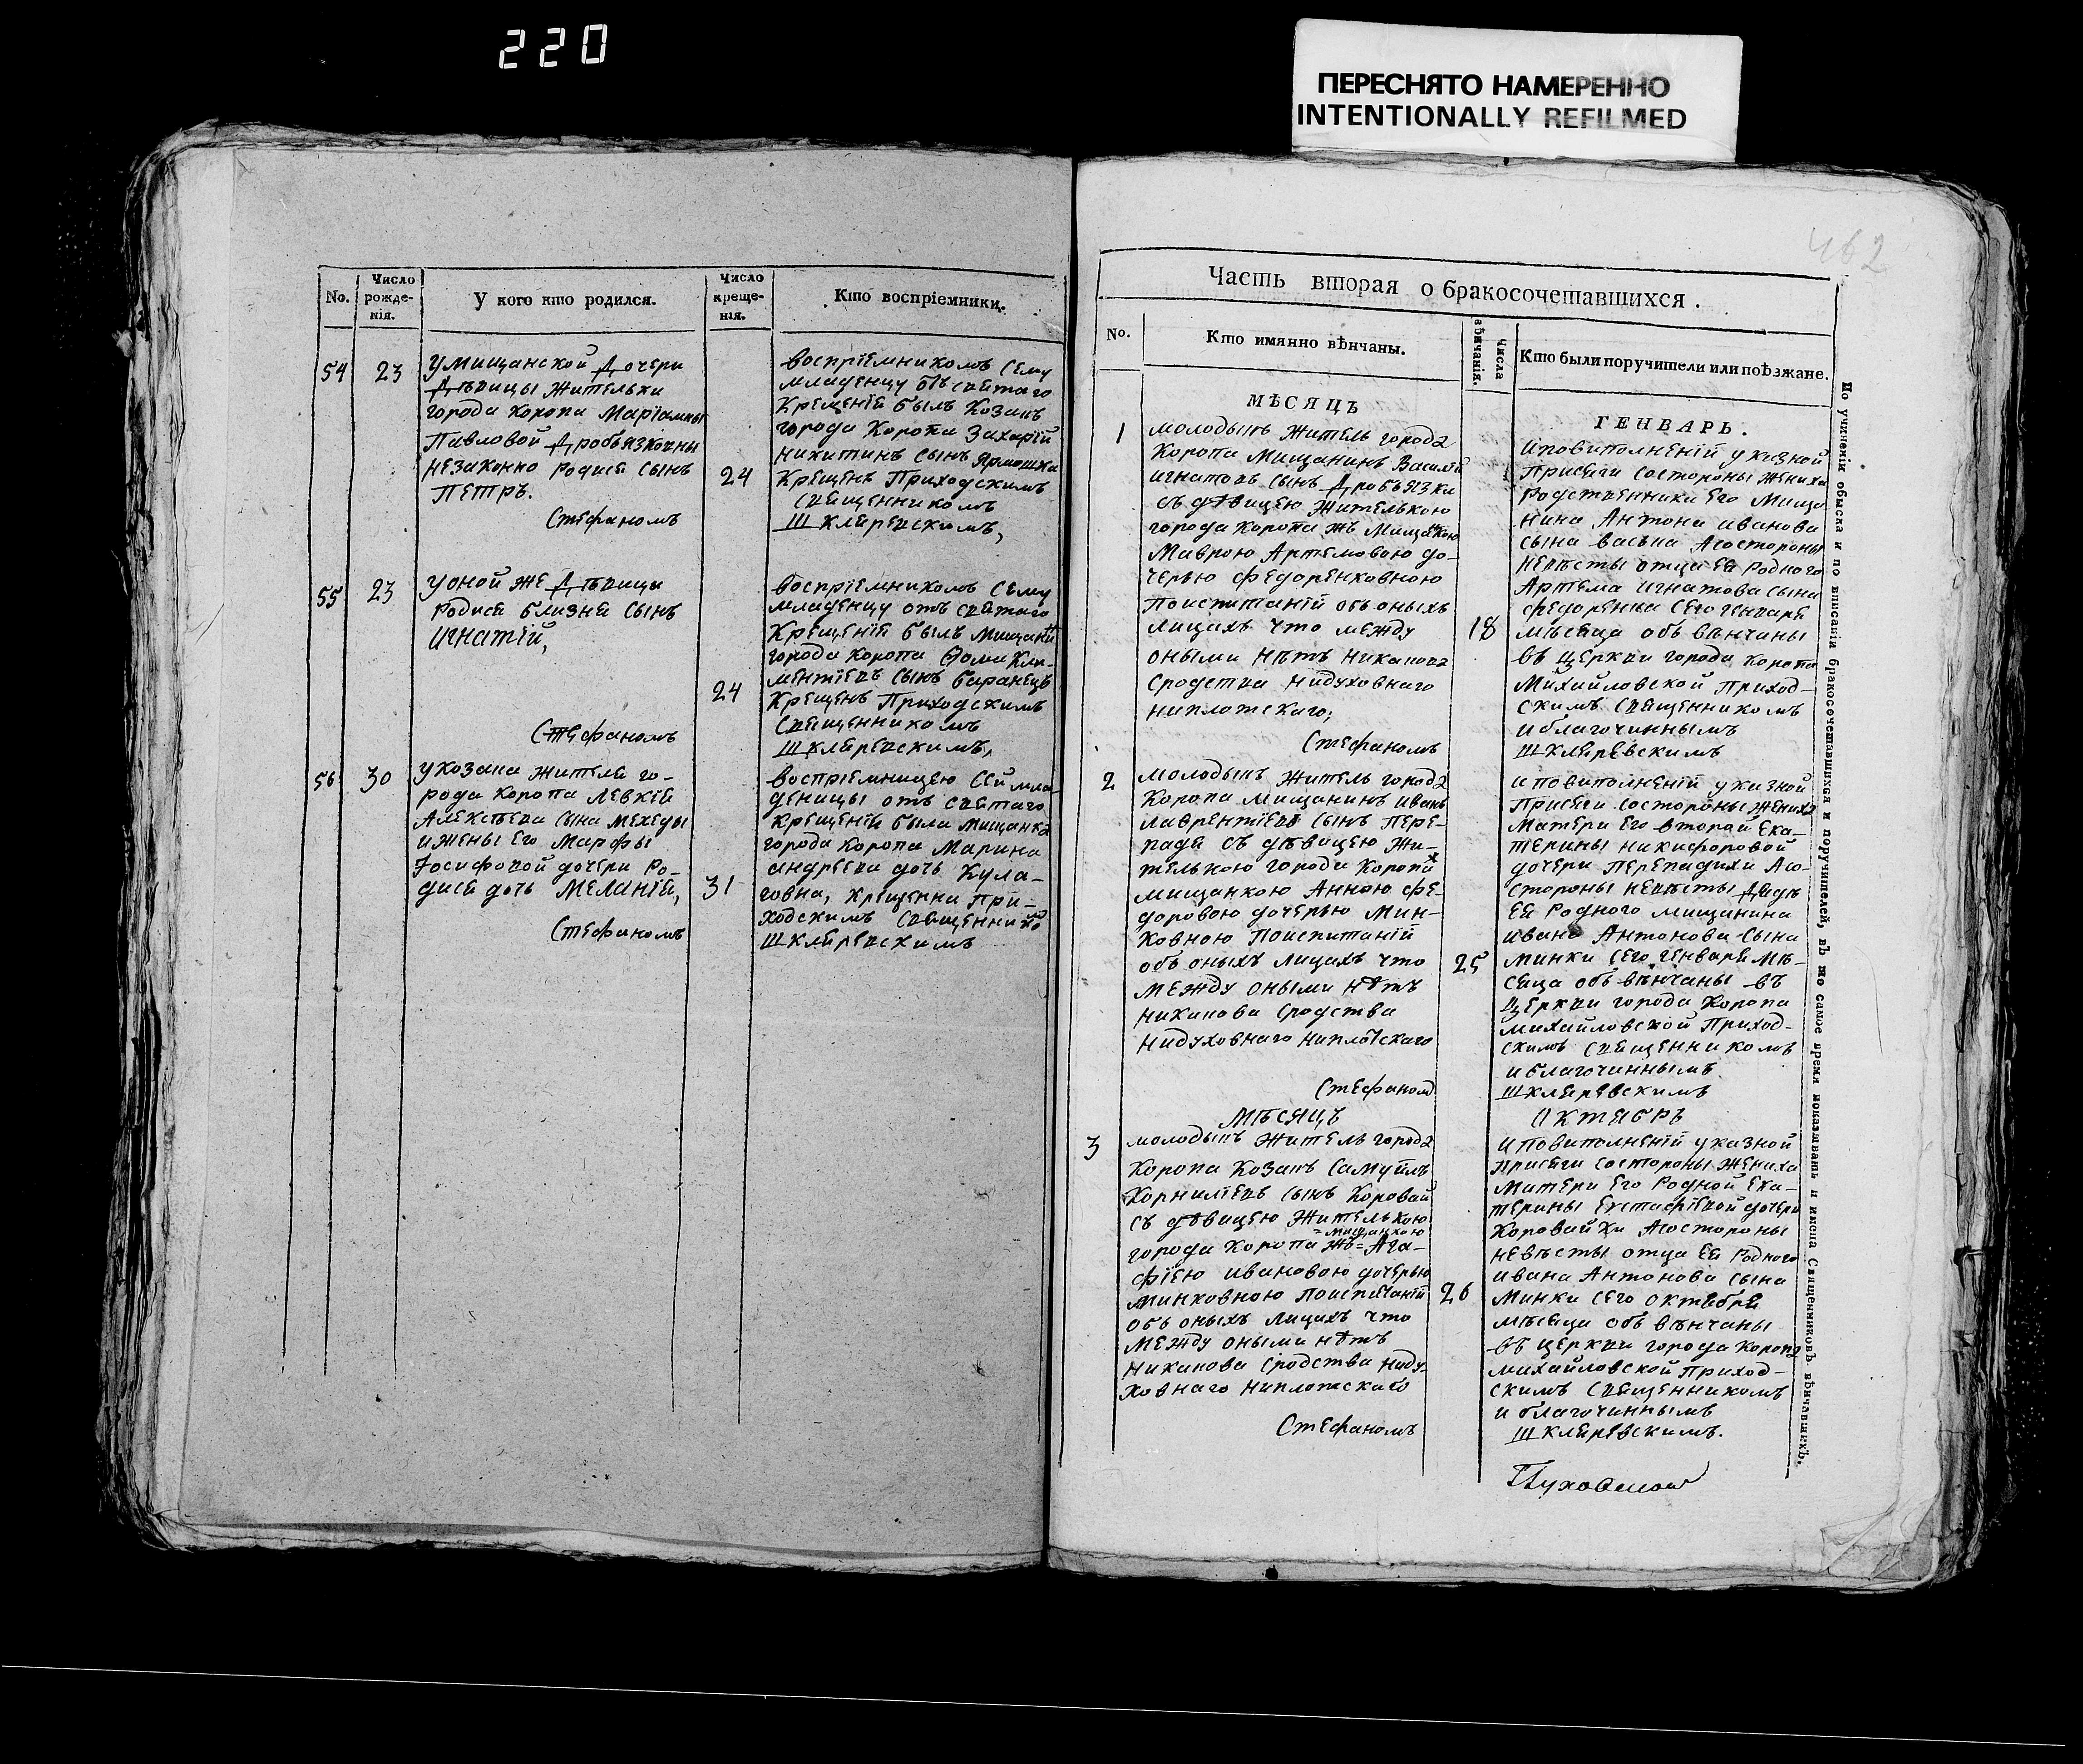 220
ПЕРЕСНЯТО НАМЕРЕННО
INTENTIONALLY REFILMED
462
No.
Число рожденія.
У кого кто родился.
Число крещенія.
Кто воспріемники.
54
23
У мищанской дочери
дѣвицы жителки
города Коропа Маріамны
Павловой Дробъязковны
незаконно родися сынъ
Петръ.
Стефаномъ
24
Воспріемникомъ сему
младенцу отъ святаго
Крещенія былъ Козакъ
города Коропа Захарій
Никитинъ сынъ Ярмошка
Крещенъ Приходскимъ
священникомъ
Шкляревскимъ,
55
23
У оной же дѣвицы
родися близня сынъ
Игнатій,
Стефаномъ
24
Воспріемникомъ сему
младенцу отъ святаго
Крещенія былъ мищанин
города Коропа Ѳома Кли-
ментіевъ сынъ Баранецъ
Крещенъ Приходскимъ
священникомъ
Шкляревскимъ,
56
30
У козака жителя го-
рода Коропа Левкія
Алексѣева сына Мехеды
и жены его Марфы
Іосифовой дочери ро-
дися дочь Меланія,
Стефаномъ
31
Воспріемницею сей мла-
деницы отъ святаго
крещенія была мищанка
города Коропа Марина
Андреева дочь Кула-
говна, крещенна при-
ходскимъ священнико
Шкляревскимъ
Часть вторая о бракосочетавшихся.
No.
Кто имянно вѣнчаны.
числа вѣнчанія.
Кто были поручители или поѣзжане.
МѢСЯЦЪ
ГЕНВАРЬ.
1
молодыкъ житель города
Коропа мищанинъ Василій
Игнатовъ сынъ Дробъязка
съ дѣвицею жителькою
города Коропа жъ мищанкою
Маврою Артемовою до-
черью Федоренковною
По испитаній объ оныхъ
лицахъ что между
оными нѣтъ никакова
сродства нидуховнаго
ниплотскаго,
Стефаномъ
18
И по виполненій указной
присяги состороны жениха
родственника его мища
нина Антона Иванова
сына Васька А состороны
невѣсты отца ея родного
Артема Игнатова сына
Федоренка сего генваря
мѣсяца объ вѣнчаны
въ церкви города Коропа
Михайловской приход-
скимъ священникомъ
и благочиннымъ
Шкляревскимъ
2
молодыкъ житель города
Коропа мищанинъ Иванъ
Лаврентіевъ сынъ Пере-
падя съ дѣвицею жи-
телькою города Коропа ж
мищанкою Анною Фе-
доровою дочерью Мин-
ковною По испитаній
объ оныхъ лицахъ что
между оными нѣтъ
никакова сродства
нидуховнаго ниплотскаго
Стефаном
25
И по виполненій указной
присяги состороны жениха
матери его второй Ека-
терины Никифоровой
дочери Перепадихи А со
стороны невѣсты дядѣ
ея родного мищанина
Ивана Антонова сына
Минки сего генваря мѣ-
сяца объ вѣнчаны въ
церкви города Коропа
Михайловской приход-
скимъ священникомъ
и благочиннымъ
Шкляревскимъ
МѢСЯЦЪ
ОКТЯБРЪ
3
молодыкъ житель города
Коропа козакъ Самуйлъ
Корниліевъ сынъ Коровай
съ дѣвицею жителькою
города Коропа жъ = мищанкою = Ага-
фіею Ивановою дочерью
Минковною По испитаній
объ оныхъ лицахъ что
между оными нѣтъ
никакова сродства ниду-
ховнаго ниплотскаго
Стефаномъ
26
И по виполненій указной
присяги состороны жениха
матери его родной Ека-
терины Евстафіевой дочери
Коровайки А состороны
невѣсты отца ея родного
Ивана Антонова сына
Минки сего октября
мѣсяца объ вѣнчаны
въ церкви города Коропа
Михайловской приход-
скимъ священникомъ
и благочиннымъ
Шкляревскимъ.
По учиненіи обыска и по вписаніи бракосочетавшихся и поручителей, въ то самое время показывать и имена Священниковъ вѣнчавшихъ.